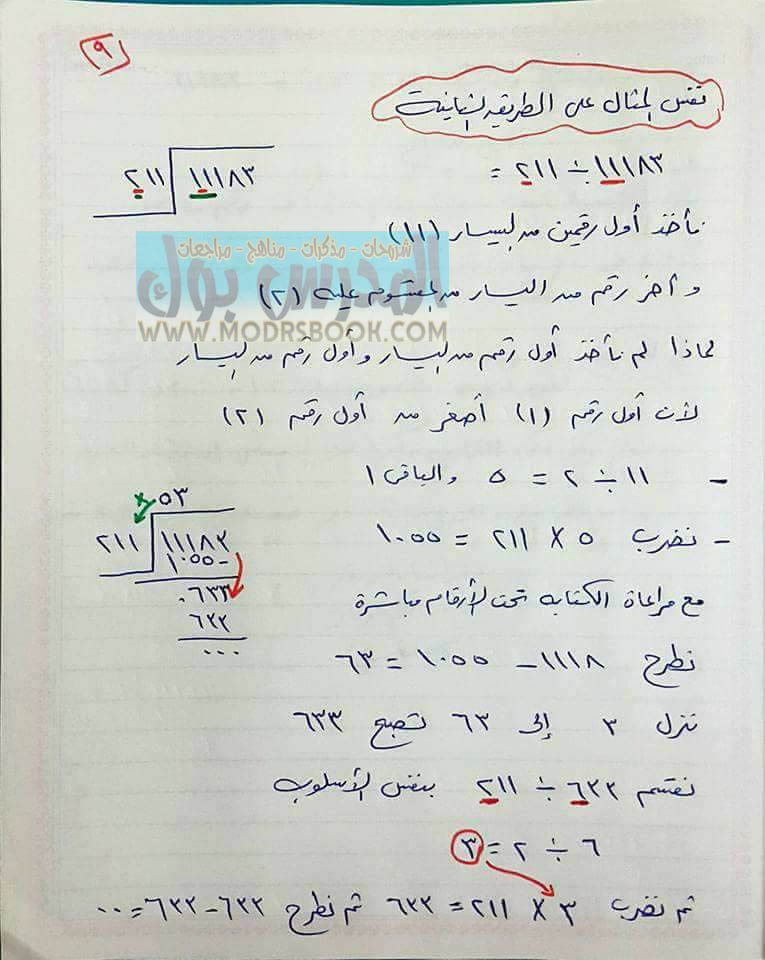 ٩
نفس المثال على الطريقة الثانية
١١١٨٣ ÷ ٢١١ =
٢١١ ١١١٨٣
نأخذ أول رقمين من اليسار (١١)
شروحات - مذكرات - مناهج - مراجعات
المدرس بوك
WWW.MODRSBOOK.COM
وأخر رقم من اليسار من المقسوم عليه (٢)
لماذا لم نأخذ أول رقم من اليسار وأول رقم من اليسار
لأن أول رقم (١) أصغر من أول رقم (٢)
- ١١ ÷ ٢ = ٥ والباقى ١
- نضرب ٥ X ٢١١ = ١٠٥٥
مع مراعاة الكتابه تحت الأرقام مباشرة
نطرح ١١١٨ - ١٠٥٥ = ٦٣
ننزل ٣ إلى ٦٣ تصبح ٦٣٣
نقسم ٦٣٣ ÷ ٢١١ بنفس الأسلوب
٦ ÷ ٢ = ٣
ثم نضرب ٣ X ٢١١ = ٦٣٣ ثم نطرح ٦٣٣ - ٦٣٣ = ٠٠
X ٠٥٣
٢١١ ١١١٨٣
١٠٥٥ -
٠٦٣٣
٦٣٣
٠٠٠